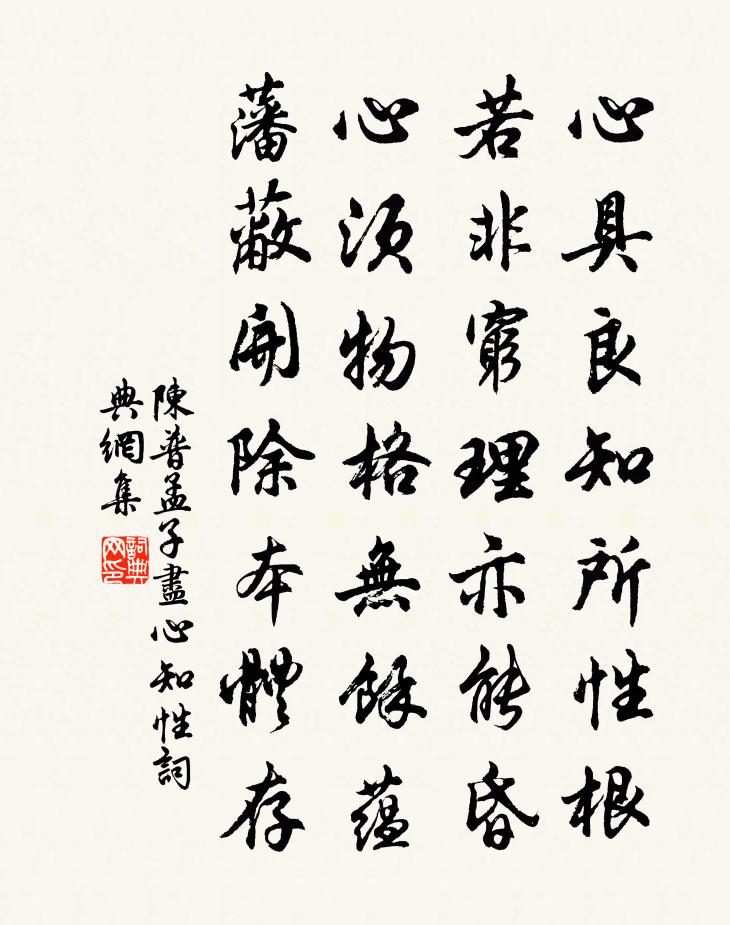 心具良知所性根
若非窮理亦能昏
心須物格無餘蘊
藩蔽開除本體存
陳普孟子盡心知性詞
典網集
詞典网